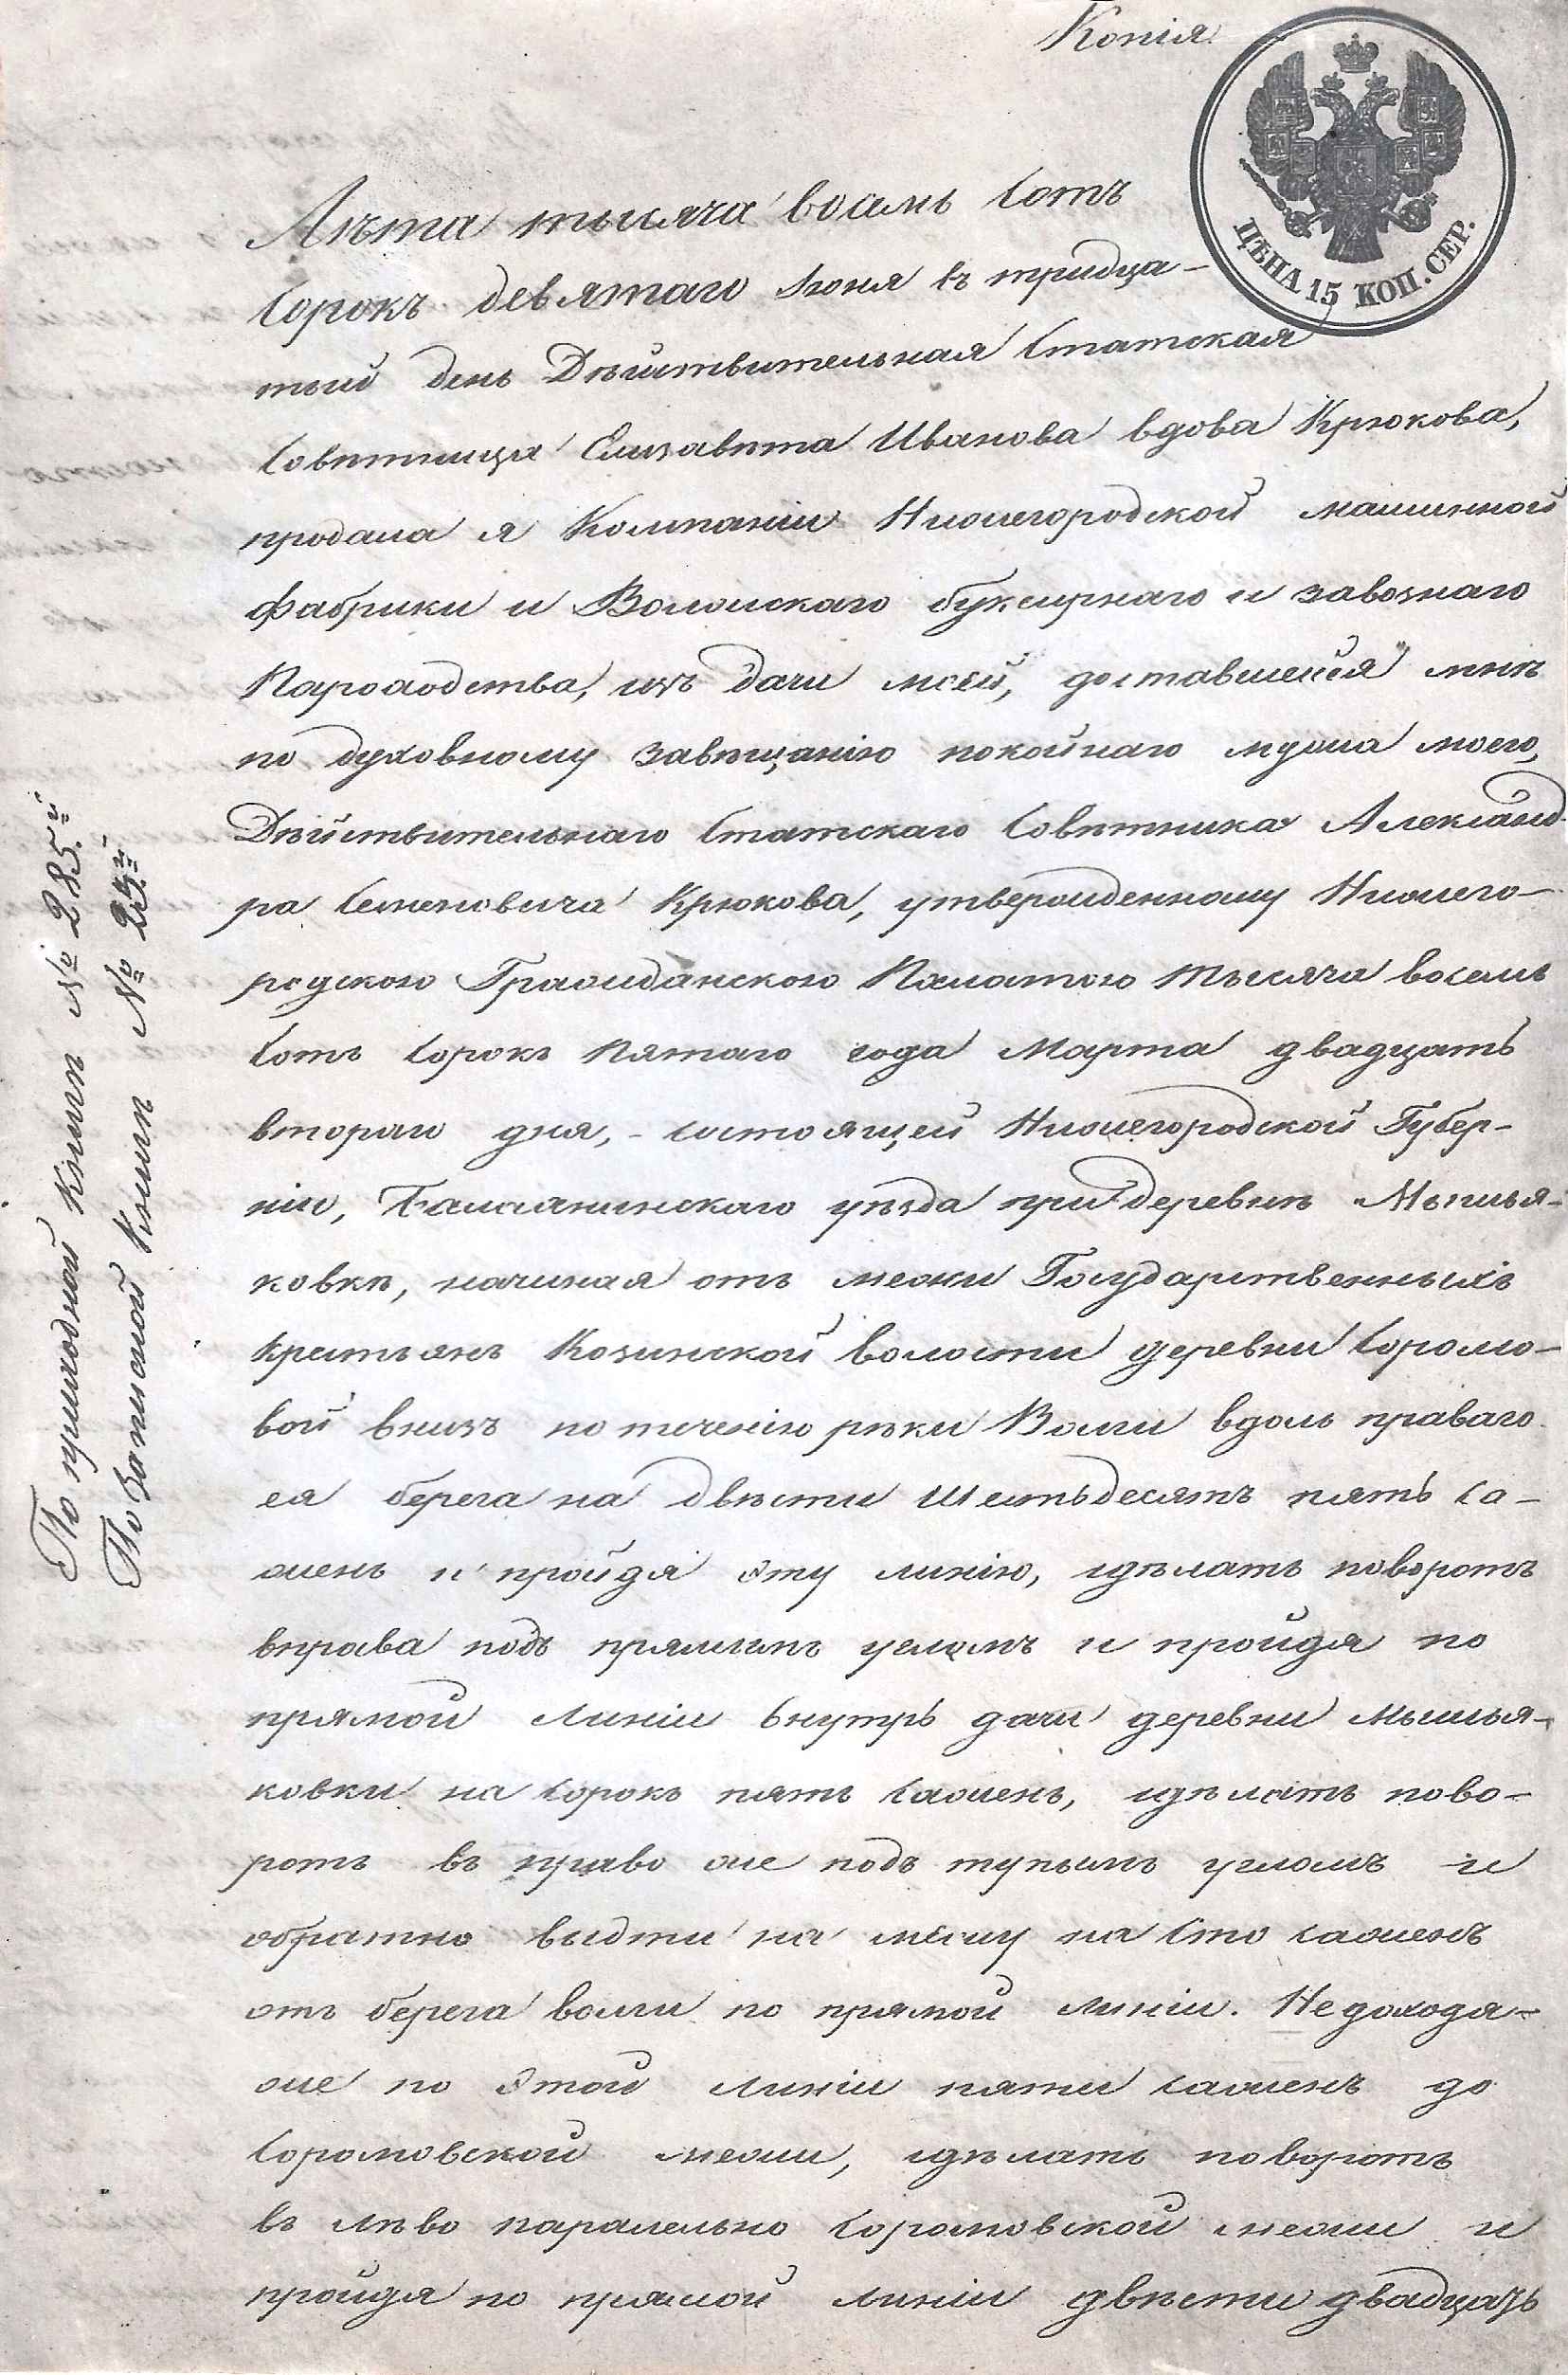 Копія.
ЦѢНА 15 КОП. СЕР.
Лѣта тысяча восемь сотъ
сорокъ девятаго Іюня въ тридца-
тый день Дѣйствительная Статская
Совѣтница Елизавета Иванова вдова Крюкова,
продала я Компаніи Нижегородской машинной
фабрики и Волжскаго буксирнаго и завознаго
Пароходства, изъ дачи моей, доставшейся мнѣ
по духовному завѣщанію покойнаго мужа моего,
Дѣйствительнаго Статскаго Совѣтника Александ-
ра Семеновича Крюкова, утвержденному Нижего-
родскою Гражданскою Палатою тысяча восемь
сотъ сорокъ пятаго года Марта двадцать
втораго дня, - состоящей Нижегородской Губер-
ніи, Балахнинскаго уѣзда при деревнѣ Мышья-
ковкѣ, начиная отъ межи Государственныхъ
крестьянъ Козинской волости деревни Сормо-
вой внизъ по теченію рѣки Волги вдоль праваго
ея берега на двѣсти шестьдесятъ пять са-
женъ и пройдя эту линію, сдѣлать поворотъ
вправа подъ прямымъ угломъ и пройдя по
прямой линіи внутрь дачи деревни Мышья-
ковки на сорокъ пять саженъ, сдѣлать пово-
ротъ въ право же подъ тупымъ угломъ и
обратно выдти на межу на сто саженъ
отъ берега волги по прямой линіи. Не доходя-
же по этой линіи пяти саженъ до
Сормовской межи, сдѣлать поворотъ
въ лѣво паралельно Сормовской межи и
пройдя по прямой линіи двѣсти двадцать
По приходной Книгѣ № 285.й
По Записной Книгѣ №